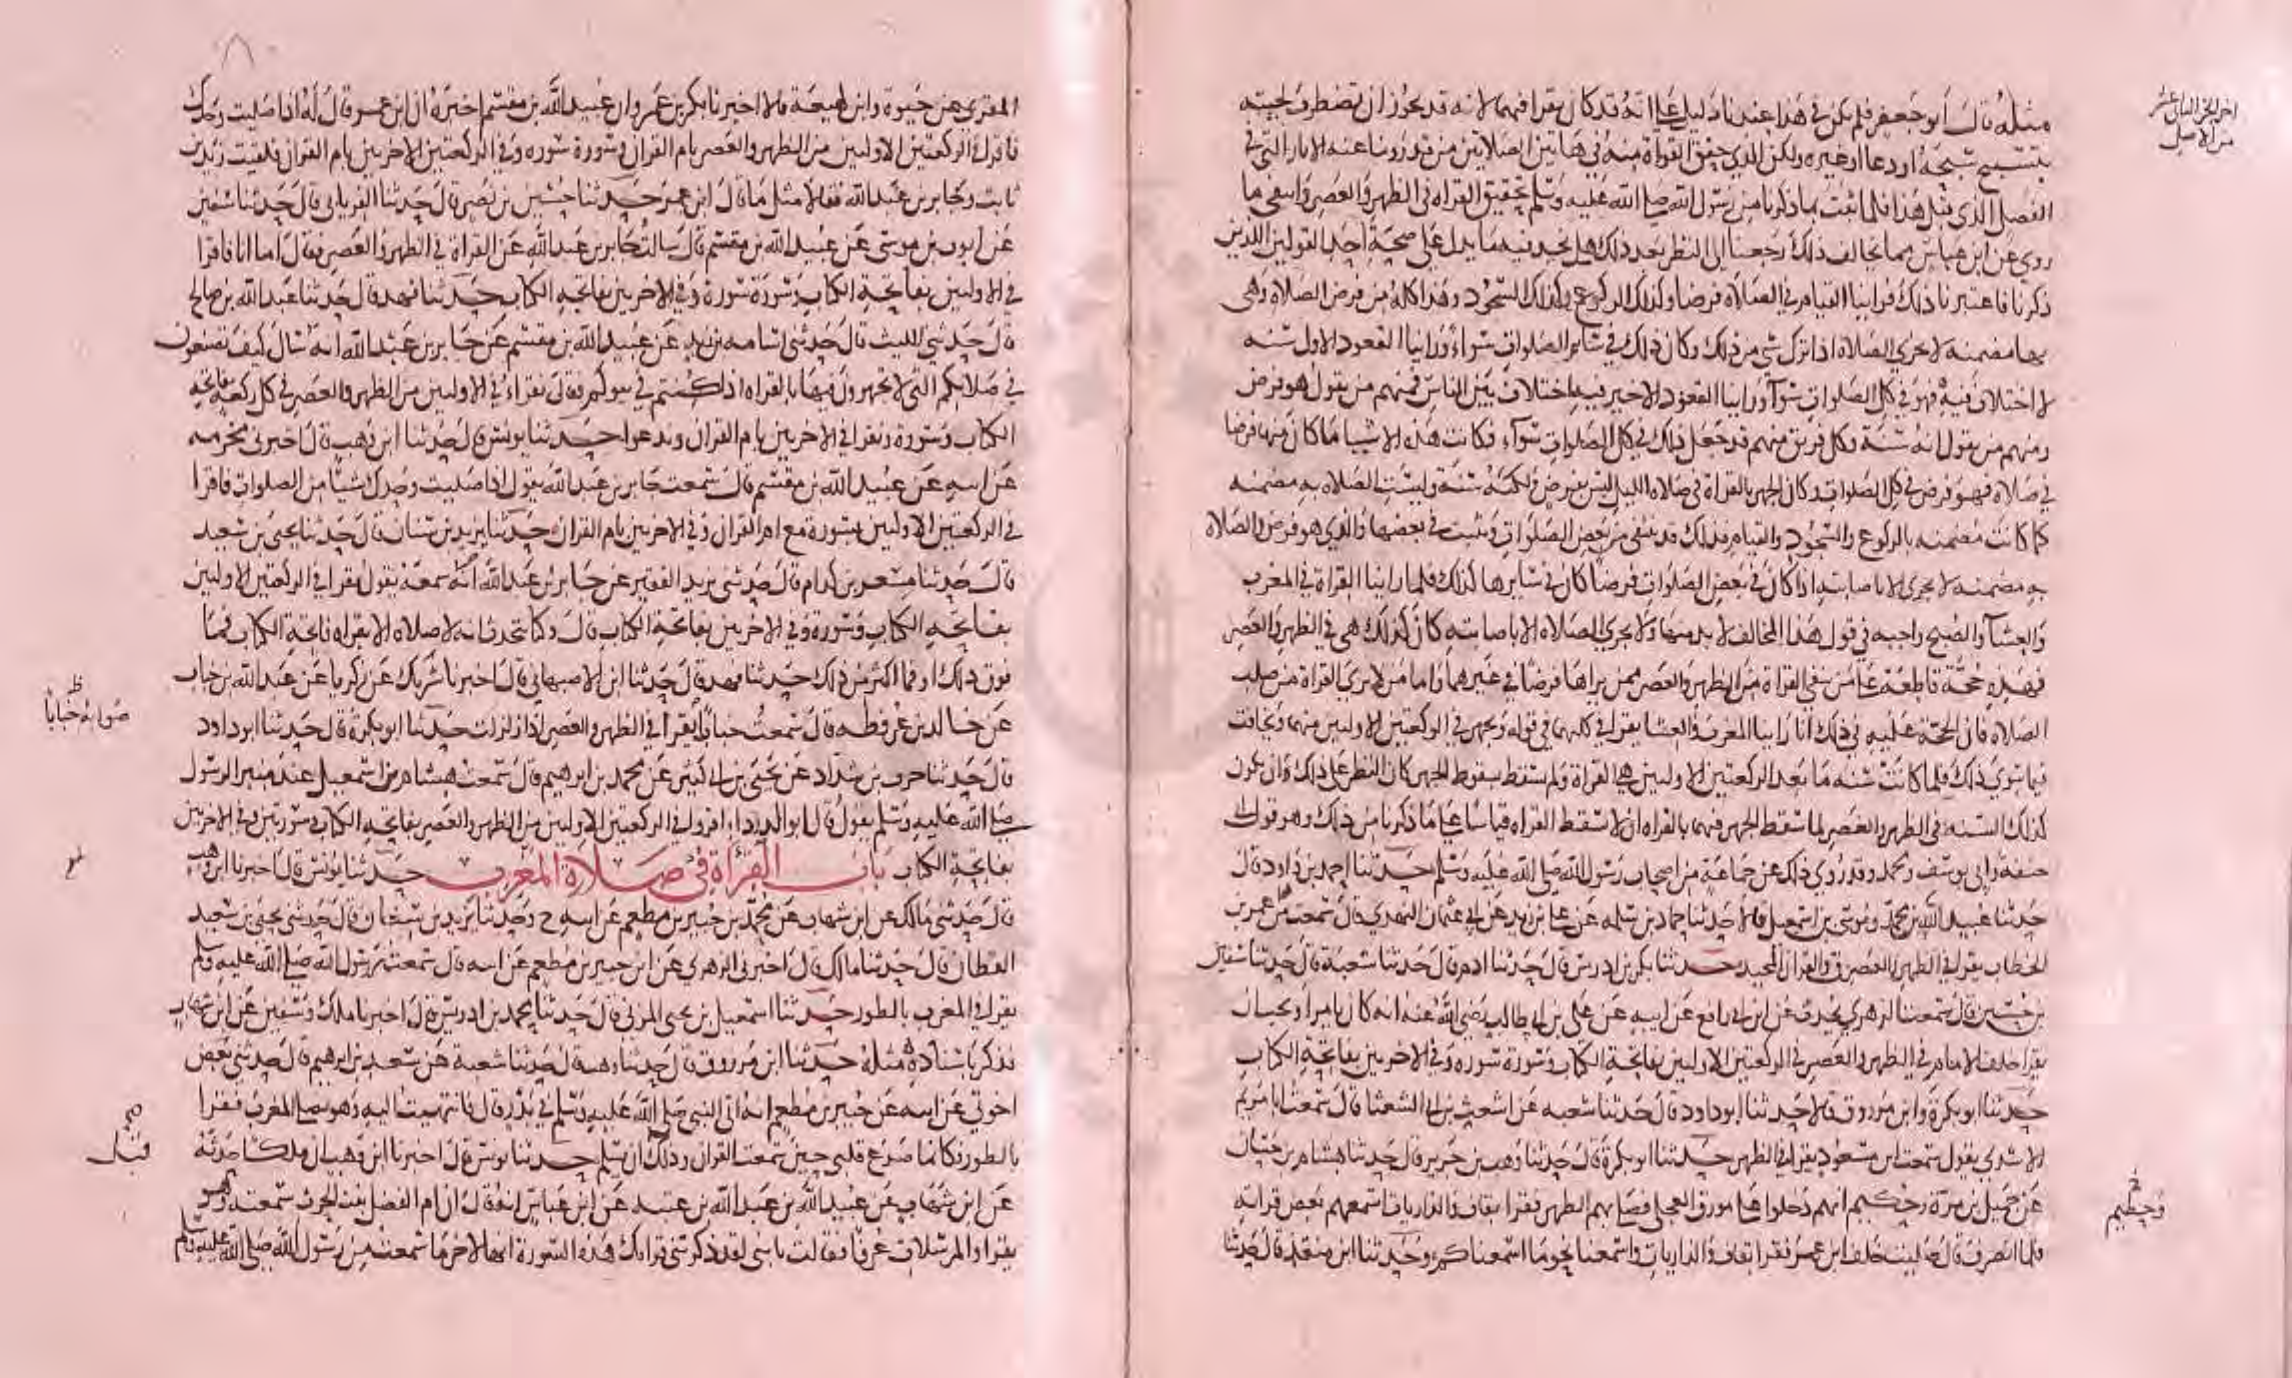 مثله قال أبو جعفر فلم يكن في هذا عندنا دليل على انه قد كان يقرا فيهما لانه قد يجوز ان تضطرب لحيته
بتسبيح سبحه او دعا او غيره ولكن الذي حقق القراة منه في هاتين الصلاتين من قد روينا عنه الاثار التي في
الفصل الذي قبل هذا فلما ثبت بما ذكرنا من رسول الله صلى الله عليه وسلم تحقيق القراه في الظهر والعصر وانتفى ما
روي عن ابن عباس مما يخالف ذلك رجعنا الى النظر بعد ذلك هل نجد فيه ما يدل على صحة احد القولين اللذين
ذكرنا فاعتبرنا ذلك فراينا القيام في الصلاة فرضا وكذلك الركوع وكذلك السجود وهذا كله من فرض الصلاة وهى
بها مضمنه لا تجزي الصلاة اذا ترك شي من ذلك وكان ذلك في سائر الصلوات سواء وراينا القعود الاول سنه
لا اختلاف فيه فهو في كل الصلوات سوآ وراينا القعود الاخير فيه اختلاف بين الناس فمنهم من يقول هو فرض
ومنهم من يقول انه سنة وكل فريق منهم قد جعل ذلك في كل الصلوات سوآء فكانت هذه الاشيا ما كان منها فرضا
في صلاة فهو فرض في كل الصلوات وكان الجهر بالقراة في صلاة الليل ليس بفرض ولكنه سنة وليست الصلاه به مضمنه
كما كانت مضمنه بالركوع والسجود والقيام فذلك قد ينتفى من بعض الصلوات ويثبت في بعضها والذي هو فرض والصلاة
به مضمنه لا تجزى الا باصابته اذا كان في بعض الصلوات فرضا كان في سائرها كذلك فلما راينا القراة في المغرب
والعشآ والصبح واجبه في قول هذا المخالف لا بد منها ولا تجزي الصلاه الا باصابته كان كذلك هى في الظهر والعصر
فهذه حجة قاطعة على من ينفي القراة من الظهر والعصر ممن يراها فرضا في غيرهما واما من لا يرى القراة من صلب
الصلاة فان الحجة عليه في ذلك أنا راينا المغرب والعشا يقرا في كلهما في قوله ويجهر في الركعتين الاوليين منهما ويخافت
فيما سوى ذلك فلما كانت سنه ما بعد الركعتين الاوليين هي القراة ولم تسقط بسقوط الجهر كان النظر على ذلك ان يكون
كذلك السنه في الظهر والعصر لما سقط الجهر فيهما بالقراه ان لا تسقط القراه قياسا على ما ذكرنا من ذلك وهو قول ابى
حنيفة وابي يوسف ومحمد وقد روي ذلك عن جماعة من اصحاب رسول الله صلى الله عليه وسلم حدثنا احمد بن داود قال
حدثنا عبيد الله بن محمد وموسى بن اسمعيل قالا حدثنا حماد بن سلمه عن علي بن زيد عن ابي عثمان النهدي قال سمعت من عمر بن
الخطاب يقرا في الظهر والعصر ق والقران المجيد حدثنا بكر بن ادريس قال حدثنا ادم قال حدثنا شعبة قال حدثنا سفين
بن حسين قال سمعت الزهري يحدث عن ابن ابي رافع عن ابيه عن علي بن ابي طالب رضي الله عنه انه كان يامر او يحب ان
يقرا خلف الامام في الظهر والعصر في الركعتين الاوليين بفاتحة الكتاب وسورة سوره وفي الاخريين بفاتحة الكتاب
حدثنا ابو بكرة وابن مرزوق قالا حدثنا ابو داود قال حدثنا شعبه عن اشعث بن ابي الشعثا قال سمعت ابا مريم
الاسدي يقول سمعت ابن مسعود يقرا في الظهر حدثنا ابو بكرة قال حدثنا وهب بن جرير قال حدثنا هشام بن حسان
عن جميل بن مرة وحكيم انهم دخلوا على مورق العجلي فصلى بهم الظهر فقرا بقاف والذاريات اسمعهم بعض قراته
فلما انصرف قال صليت خلف ابن عمر فقرا بقاف والذاريات واسمعنا نحو ما اسمعناكم وحدثنا ابن منقذ قال حدثنا
اخر الجز الثاني عشر
من الاصل
وحطيم
المقري عن حيوة وابن لهيعة قالا اخبرنا بكر بن عمرو ان عبيد الله بن مقسم اخبره ان ابن عمر قال له اذا صليت وحدك
فاقرا في الركعتين الاوليين من الظهر والعصر بام القران وسورة سوره وفي الركعتين الاخريين بام القران فلقيت زيد بن
ثابت وجابر بن عبد الله فقالا مثل ما قال ابن عمر حدثنا حسين بن نصر قال حدثنا الفريابي قال حدثنا سفين
عن ايوب بن موسى عن عبيد الله بن مقسم قال سالت جابر بن عبد الله عن القراة في الظهر والعصر فقال اما انا فاقرا
في الاوليين بفاتحة الكتاب وسورة سورة وفي الاخريين بفاتحة الكتاب حدثنا فهد قال حدثنا عبد الله بن صالح
قال حدثني الليث قال حدثني اسامه بن زيد عن عبيد الله بن مقسم عن جابر بن عبد الله انه سال كيف تصنعون
في صلاتكم التي لا تجهرون فيها بالقراه اذا كنتم في بيوتكم فقال نقراء في الاوليين من الظهر والعصر في كل ركعه بفاتحة
الكتاب وسورة ونقرا في الاخريين بام القران وندعوا حدثنا يونس قال حدثنا ابن وهب قال اخبرني مخرمه
عن ابيه عن عبيد الله بن مقسم قال سمعت جابر بن عبد الله يقول اذا صليت وحدك شيا من الصلوات فاقرا
في الركعتين الاوليين بسورة مع ام القران وفي الاخريين بام القران حدثنا يزيد بن سنان قال حدثنا يحيى بن سعيد
قال حدثنا مسعر بن كدام قال حدثني يزيد الفقير عن جابر بن عبد الله انه سمعه يقول يقرا في الركعتين الاوليين
بفاتحة الكتاب وسورة وفي الاخريين بفاتحة الكتاب قال وكنا نتحدث انه لا صلاه الا بقراه فاتحة الكتاب فما
فوق ذلك او فما اكثر من ذلك حدثنا فهد قال حدثنا ابن الاصبهاني قال اخبرنا شريك عن زكريا عن عبد الله بن خباب
عن خالد بن عرفطه قال سمعت خبابا يقرا في الظهر والعصر اذا زلزلت حدثنا ابو بكرة قال حدثنا ابو داود
قال حدثنا حرب بن شداد عن يحيى بن ابي كثير عن محمد بن ابرهيم قال سمعت هشام بن اسمعيل عند منبر الرسول
صلى الله عليه وسلم يقول قال ابو الدرداء اقروا في الركعتين الاوليين من الظهر والعصر بفاتحة الكتاب وسورتين وفي الاخريين
بفاتحة الكتاب باب القراة في صلاة المغرب حدثنا يونس قال اخبرنا ابن وهب
قال حدثني مالك عن ابن شهاب عن محمد بن جبير بن مطعم عن ابيه ح وحدثنا يزيد بن سنان قال حدثني يحيى بن سعيد
القطان قال حدثنا مالك قال اخبرني الزهري عن ابن جبير بن مطعم عن ابيه قال سمعت رسول الله صلى الله عليه وسلم
يقرا في المغرب بالطور حدثنا اسمعيل بن يحيى المزني قال حدثنا محمد بن ادريس قال اخبرنا ملك وسفين عن ابن شهاب
فذكر باسناده مثله حدثنا ابن مرزوق قال حدثنا وهب قال حدثنا شعبة عن سعد بن ابرهيم قال حدثني بعض
اخوتي عن ابيه عن جبير بن مطعم انه اتى النبي صلى الله عليه وسلم في بدر قال فانتهيت اليه وهو يصلي المغرب فقرا
بالطور فكانما صدع قلبي حين سمعت القران وذلك ان يسلم حدثنا يونس قال اخبرنا ابن وهب ان ملكا حدثه
عن ابن شهاب عن عبيد الله بن عبد الله بن عتبه عن ابن عباس انه قال ان ام الفضل بنت الحرث سمعته وهو
يقرا والمرسلات عرفا فقالت يا بني لقد ذكرتني قراتك هذه السورة انها لاخر ما سمعت من رسول الله صلى الله عليه وسلم
ظ
صوابه خبابا
صح
قبل